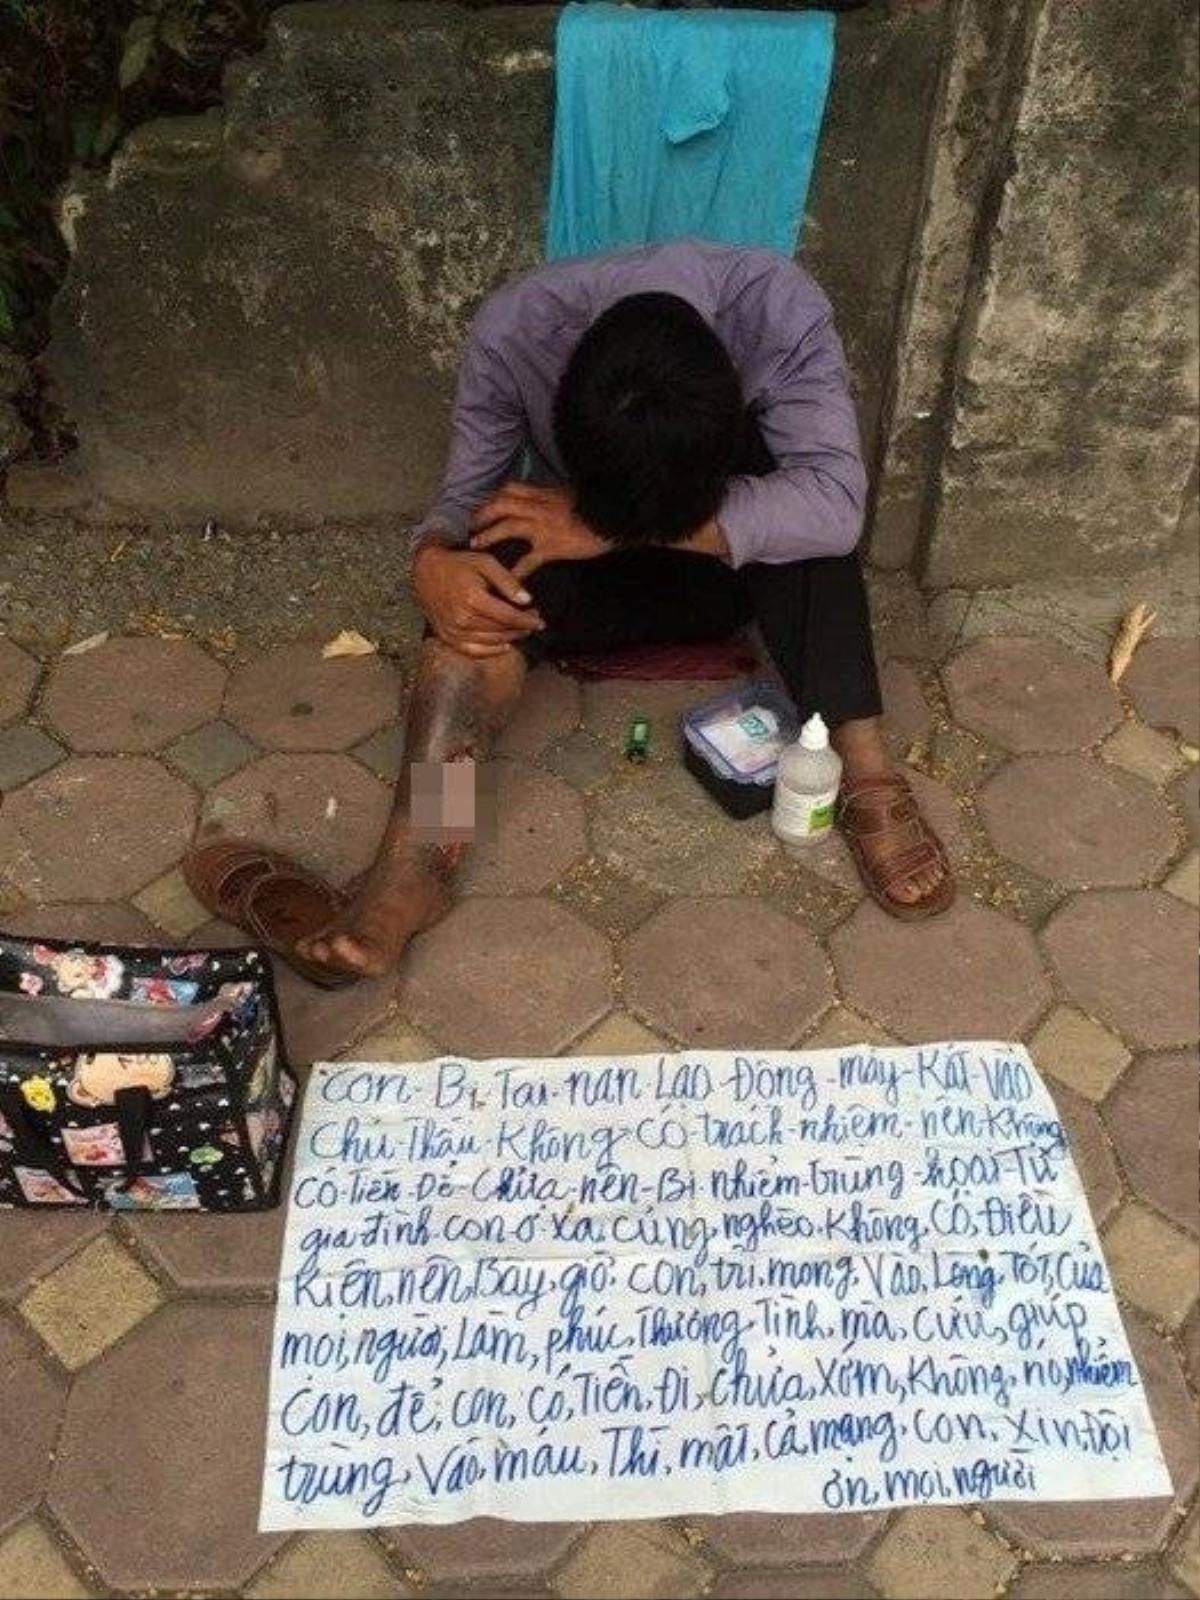 Con-Bị-Tai-nạn-Lao-Động-máy-Kát-Vào
Chủ-Thầu-Không-Có-trách-nhiệm-nên-Không
Có-Tiền-Để-Chữa-nên-Bị nhiễm-trùng-hoại-Tử
gia-đình-con-ở-Xa, cũng, nghèo-Không, Có, Điều
Kiện, nên, Bây, giờ, con, trì, mong, Vào, Lòng, Tốt, Của
mọi, người, Làm, phúc, Thương, Tình, mà, cứu, giúp
Con, để, con, có, Tiền, Đi, chữa, Xớm, Không, nó, nhiễm
trùng, Vào, máu, Thì, mất, Cả, mạng, con, Xin, Đội
ơn, mọi, người